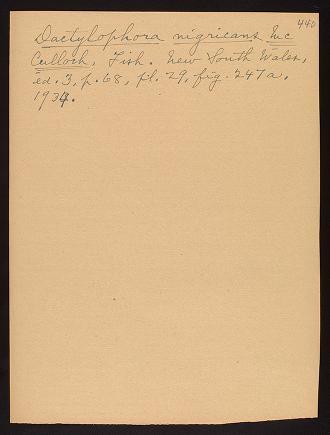 440
Dactylophora nigricans Mc
Culloch, Fish. New South Wales,
ed. 3, p. 68, pl. 29, fig. 247a.
1934.